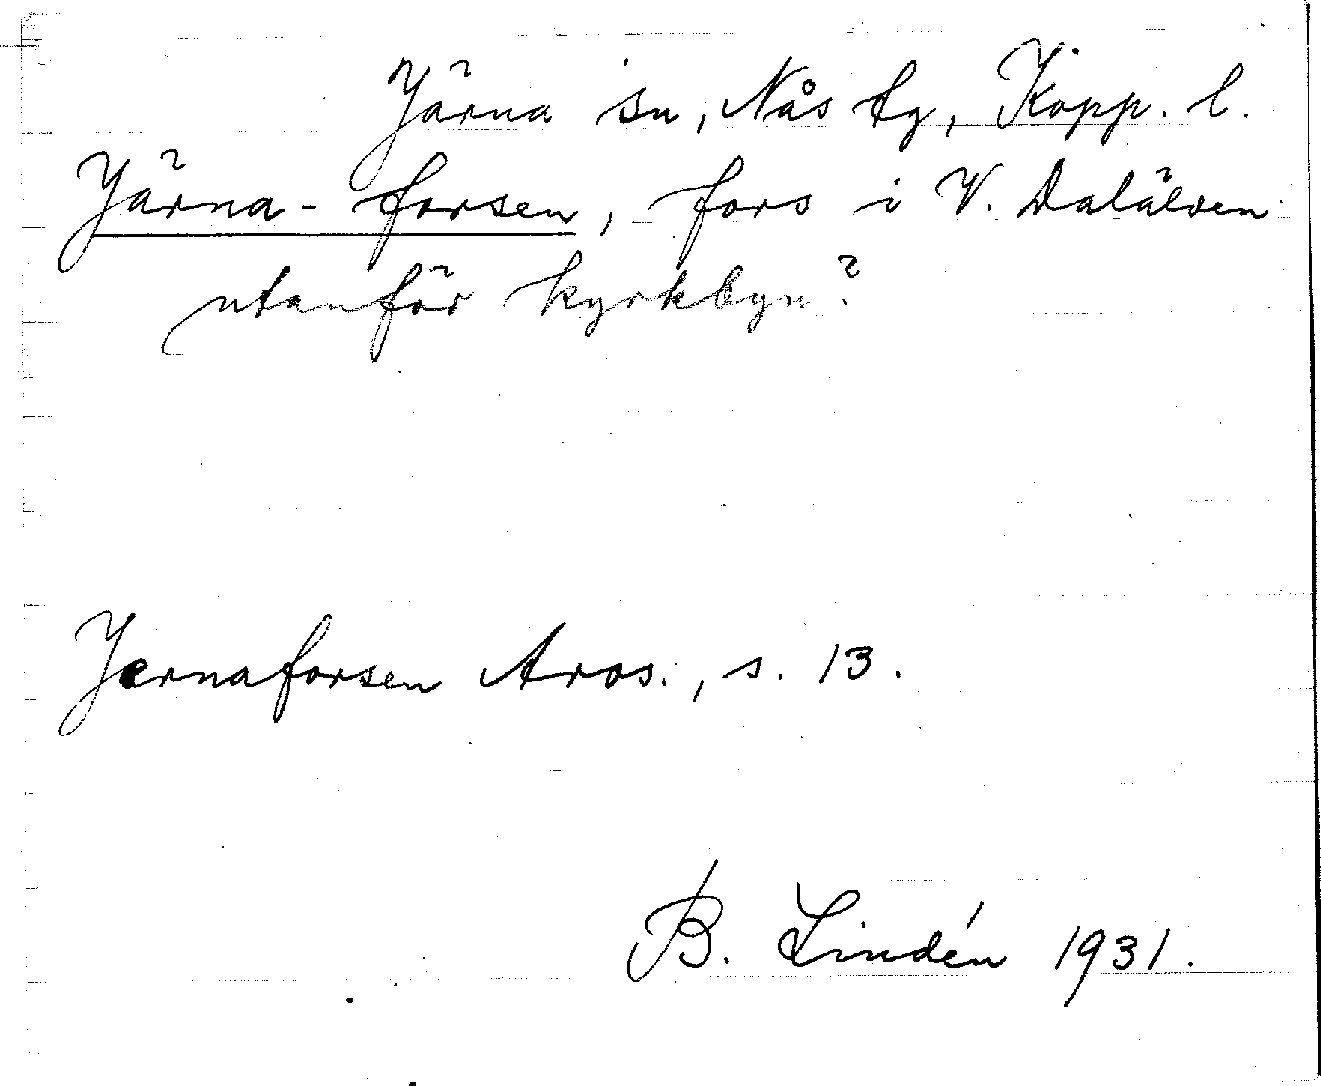 Järna sn, Nås tg, Kopp. l.
Järna-forsen, fors i V. Dalälven
utanför kyrkbyn?
Jernaforsen Aros., s. 13.
B. Lindén 1931.